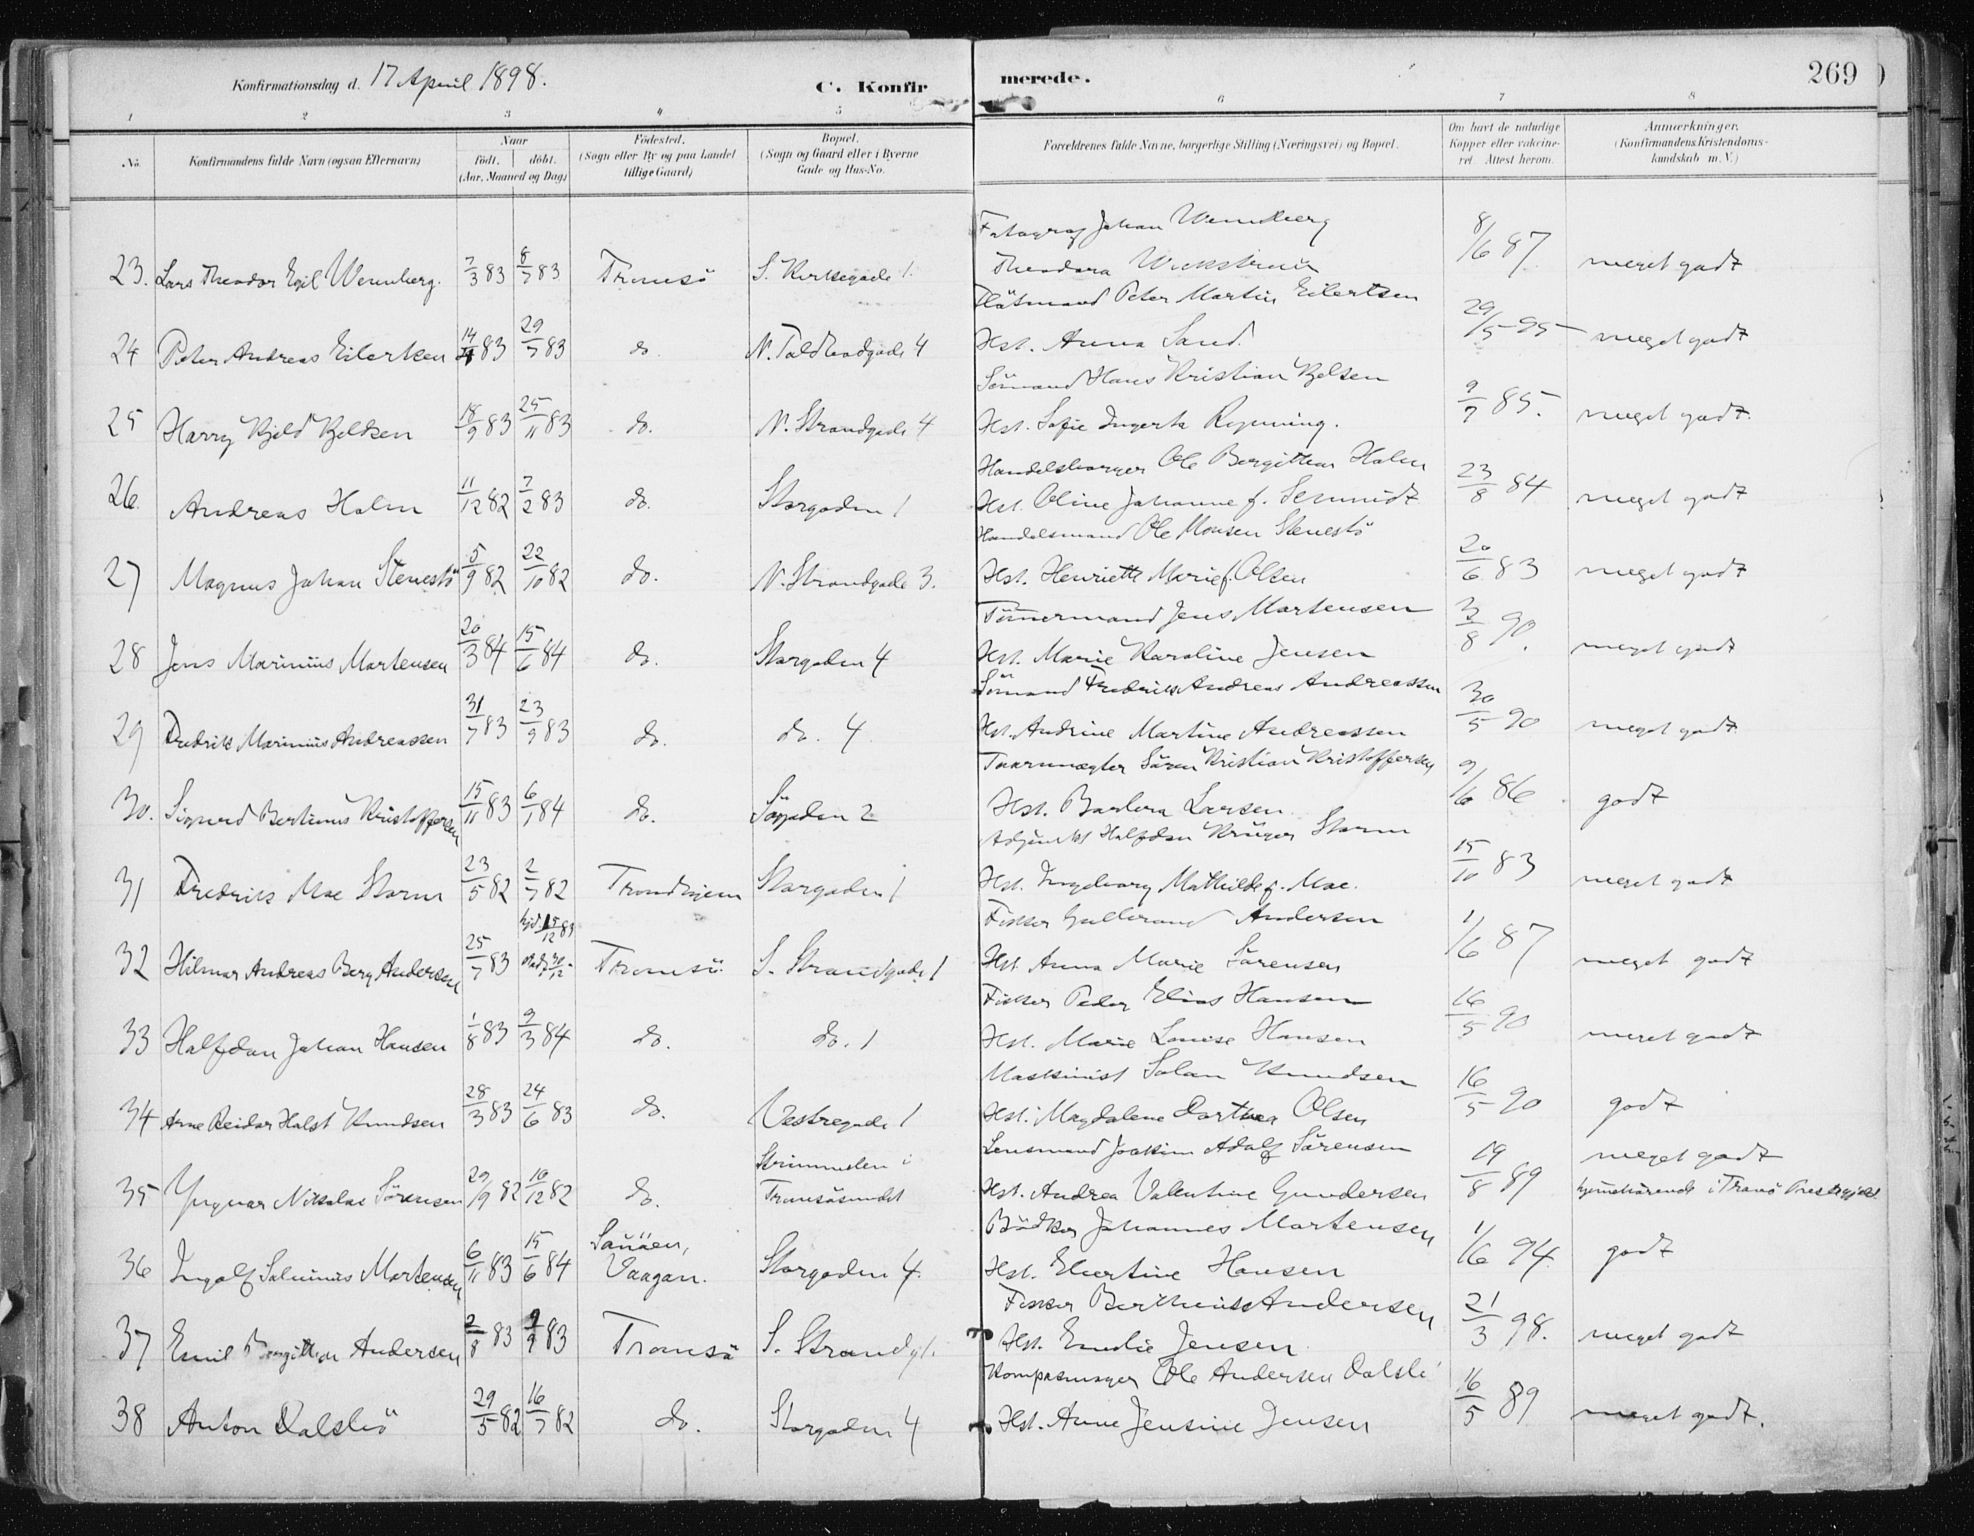 Konfirmationsdag d. 17 April 1898.
C. Konfirmerede.
269
1 2 3 4 5 6 7 8
No.
Konfirmandens fulde Navn (ogsaa Efternavn)
Naar
født. døbt.
(Aar, Maaned og Dag)
Fødested.
(Sogn eller By og paa Landet
tillige Gaard)
Bopæl.
(Sogn og Gaard eller i Byerne
Gade og Hus-No.
Forældrenes fulde Navne, borgerlige Stilling (Næringsvei) og Bopæl.
Om havt de naturlige
Kopper eller vakcine-
ret. Attest herom.
Anmærkninger.
(Konfirmandens Kristendoms-
kundskab m. V.)
Fotograf Johan Wennberg
23. Lars Theodor Egil Wennberg. 7/3 83 8/7 83 Tromsö S. Kirkegade 1. Theodora 8/6 87 meget godt
Peter Martin Eilertsen
24 Peter Andreas Eilertsen 83 29/7 83 do. N. Toldbodgade 4 Hst. Anna Sand. 29/5 95 meget godt
Sömand Hans Kristian Kjelsen
25 Harry Kjeld Kjeldsen 18/9 83 25/11 83 do. N. Strandgade 4 Hst. Sofie 9/7 85. meget godt.
Handelsborger Ole Bergithon Holm
26. Andreas Holm 11/12 82 7/2 83 do. Storgaden 1 Hst. Oline Johanne f. Schmidt 23/8 84 meget godt
Handelsmand Ole Monsen Stenesö
27 Magnus Johan 5/9 82 22/10 82 do. N. Strandgade 3. Hst. Henriette Marie f. Olsen 20/6 83 meget godt
Tömmermand Jens Martensen
28 Jens Marinius Martensen 20/3 84 15/6 84 do. Storgaden 4 Hst. Marie Karoline Jensen 3/8 90. meget godt
Sömand Fredrik Andreas Andreassen
29 Fredrik Marinius Andreassen 31/7 83 23/9 83 do. do. 4 Hst. Andrine Martine Andreassen 30/5 90 meget godt
Taarnvægter Sören Kristian Kristoffersen
30. Sigurd Bertinus Kristoffersen 15/11 83 6/1 84 do. Sögaden 2 Hst. Barbera Larsen. 9/6 86. godt
Adjunkt Halfdan Krüger Storm
31 Fredrik Moe Storm 23/5 82 2/7 82 Trondhjem Storgaden 1 Hst. Ingeborg Mathilde f. Moe. 15/10 83 meget godt
Fisker Andersen
32 Hilmar Andreas Berg Andersen 25/7 83 Tromsö. S. Strandgade 1 Hst Anna Marie Sörensen 1/6 87 meget godt
Fisker Peder Elias Hansen
33 Halfdan Johan Hansen 1/8 83 9/3 84 do. do. 1 Hst. Marie Louise Hansen 16/5 90 meget godt
Maskinist Knudsen
34 Arne Reidar Holst Knudsen 28/3 83 24/6 83 do. Vestregade 1 Hst. Magdalene Dorthea Olsen 16/5 90 godt
Strimmelen i Lensmand Joakim Adolf Sörensen meget godt
35 Yngvar Nikolai Sörensen 29/9 82 10/12 82 do. Tromsösundet Hst. Andrea Valentine Gundersen 19/8 89 hjemmehörende i Tranö Prestegjeld
Bödker Johannes Martensen
36 Ingolf Martensen 6/11 83 15/6 84 Vaagan. Storgaden 4. Hst. Hansen 1/6 94. godt
Fisker Andersen
37 Emil Bergithon Andersen 2/8 83 83 Tromsö S. Strandg 1. Hst. Emilie Jensen. 21/3 98. meget godt
Ole Andersen
38 Anton Dalslö 29/5 82 16/7 82 do. Storgaden 4 Hst. Anne Jensine Jensen 16/5 89 meget godt.